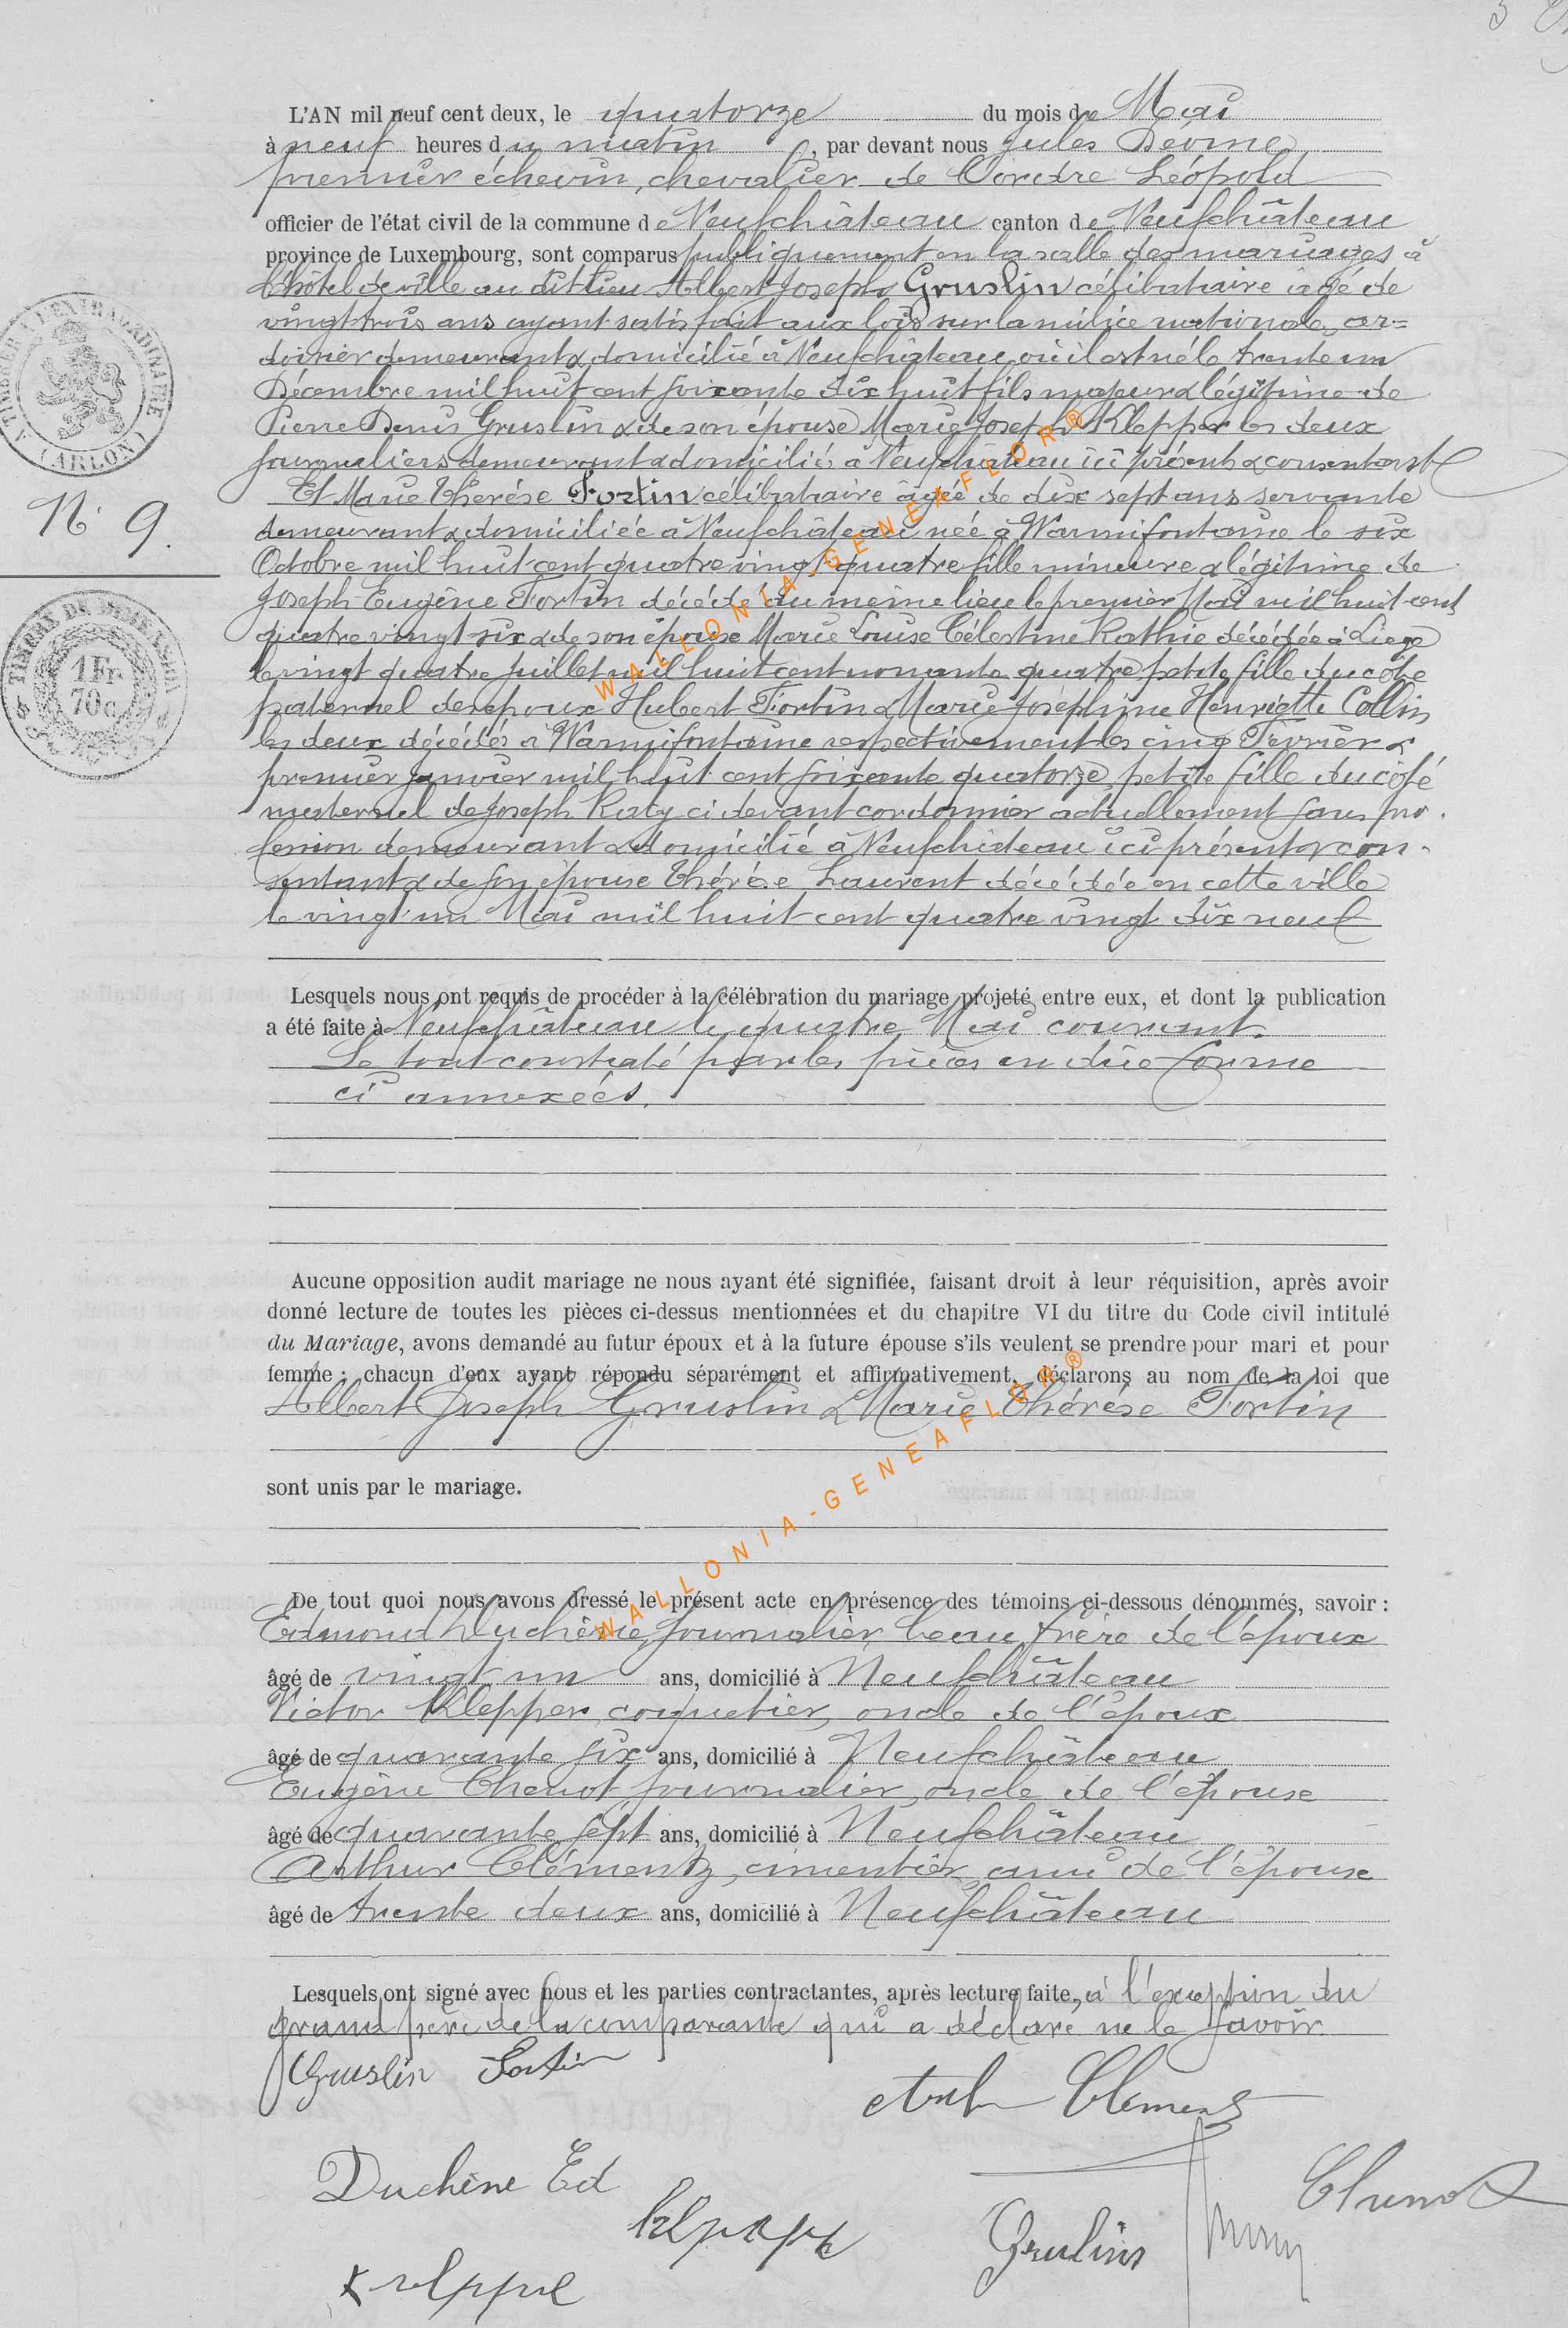 L'AN mil neuf cent deux, le quatorze du mois de Mai
à neuf heures du matin, par devant nous Jules
premier échevin, chevalier de l'ordre Léopold
officier de l'état civil de la commune de Neufchâteau canton de Neufchâteau
province de Luxembourg, sont comparus publiquement en la salle des mariages à
l'hôtel de ville au dit lieu Albert Joseph Gruslin célibataire âgé de
vingt trois ans ayant satisfait aux lois sur la milice nationale, ar=
doisier demeurant & domicilié à Neufchâteau où il est né le trente un
Décembre mil huit cent soixante dix huit fils majeur & légitime de
Pierre Denis Gruslin & de son épouse Marie Joseph Klepper les deux
journaliers demeurant & domiciliés à Neufchâteau ici présents & consentants
Et Marie Thérése Fortin célibataire âgée de dix sept ans servante
N° 9.
demeurant & domiciliée à Neufchâteau née à Warmifontaine le six
Octobre mil huit cent quatre vingt quatre fille mineure & légitime de
Joseph Eugène Fortin décédé au même lieu le premier Mai mil huit cent
quatre vingt six & de son épouse Marie Louise Célestine Rathie décédée à Liège
le vingt quatre Juillet mil huit cent nonante quatre petite fille du côté
paternel des époux Hubert Fortin & Marie Joséphine Henriette Collin
les deux décédés à Warmifontaine respectivement les cinq Février &
premier Janvier mil huit cent soixante quatorze, petite fille du côté
maternel de Joseph Raty ci devant cordonnier actuellement sans pro.
fession demeurant & domicilié à Neufchâteau ici présent & con-
sentant & de son épouse Thérése Laurent décédée en cette ville
le vingt un Mai mil huit cent quatre vingt dix neuf
A TIMBRER A L'EXTRAORDINAIRE (ARLON)
TIMBRE DE DIMENSION
1 Fr
70 c
Lesquels nous ont requis de procéder à la célébration du mariage projeté entre eux, et dont la publication
a été faite à Neufchâteau le quatre Mai courant.
Le tout constaté par les pièces en due forme
ci annexées.
Aucune opposition audit mariage ne nous ayant été signifiée, faisant droit à leur réquisition, après avoir
donné lecture de toutes les pièces ci-dessus mentionnées et du chapitre VI du titre du Code civil intitulé
du Mariage, avons demandé au futur époux et à la future épouse s'ils veulent se prendre pour mari et pour
femme : chacun d'eux ayant répondu séparément et affirmativement, déclarons au nom de la loi que
Albert Joseph Gruslin & Marie Thérése Fortin
sont unis par le mariage.
De tout quoi nous avons dressé le présent acte en présence des témoins ci-dessous dénommés, savoir :
Edmond Duchêne, journalier, beau frère de l'époux
âgé de vingt un ans, domicilié à Neufchâteau
Victor Klepper, coquetier, oncle de l'époux
âgé de quarante six ans, domicilié à Neufchâteau
Eugène Chenot, journalier, oncle de l'épouse
âgé de quarante sept ans, domicilié à Neufchâteau
Arthur Clémentz, cimentier, ami de l'épouse
âgé de trente deux ans, domicilié à Neufchâteau
Lesquels ont signé avec nous et les parties contractantes, après lecture faite, à l'exception du
grand père de la comparante qui a déclaré ne le savoir.
Gruslin Fortin
Clémentz
Duchêne Ed
Chenot
Gruslin
WALLONIA-GENEAFLOR®
WALLONIA-GENEAFLOR®